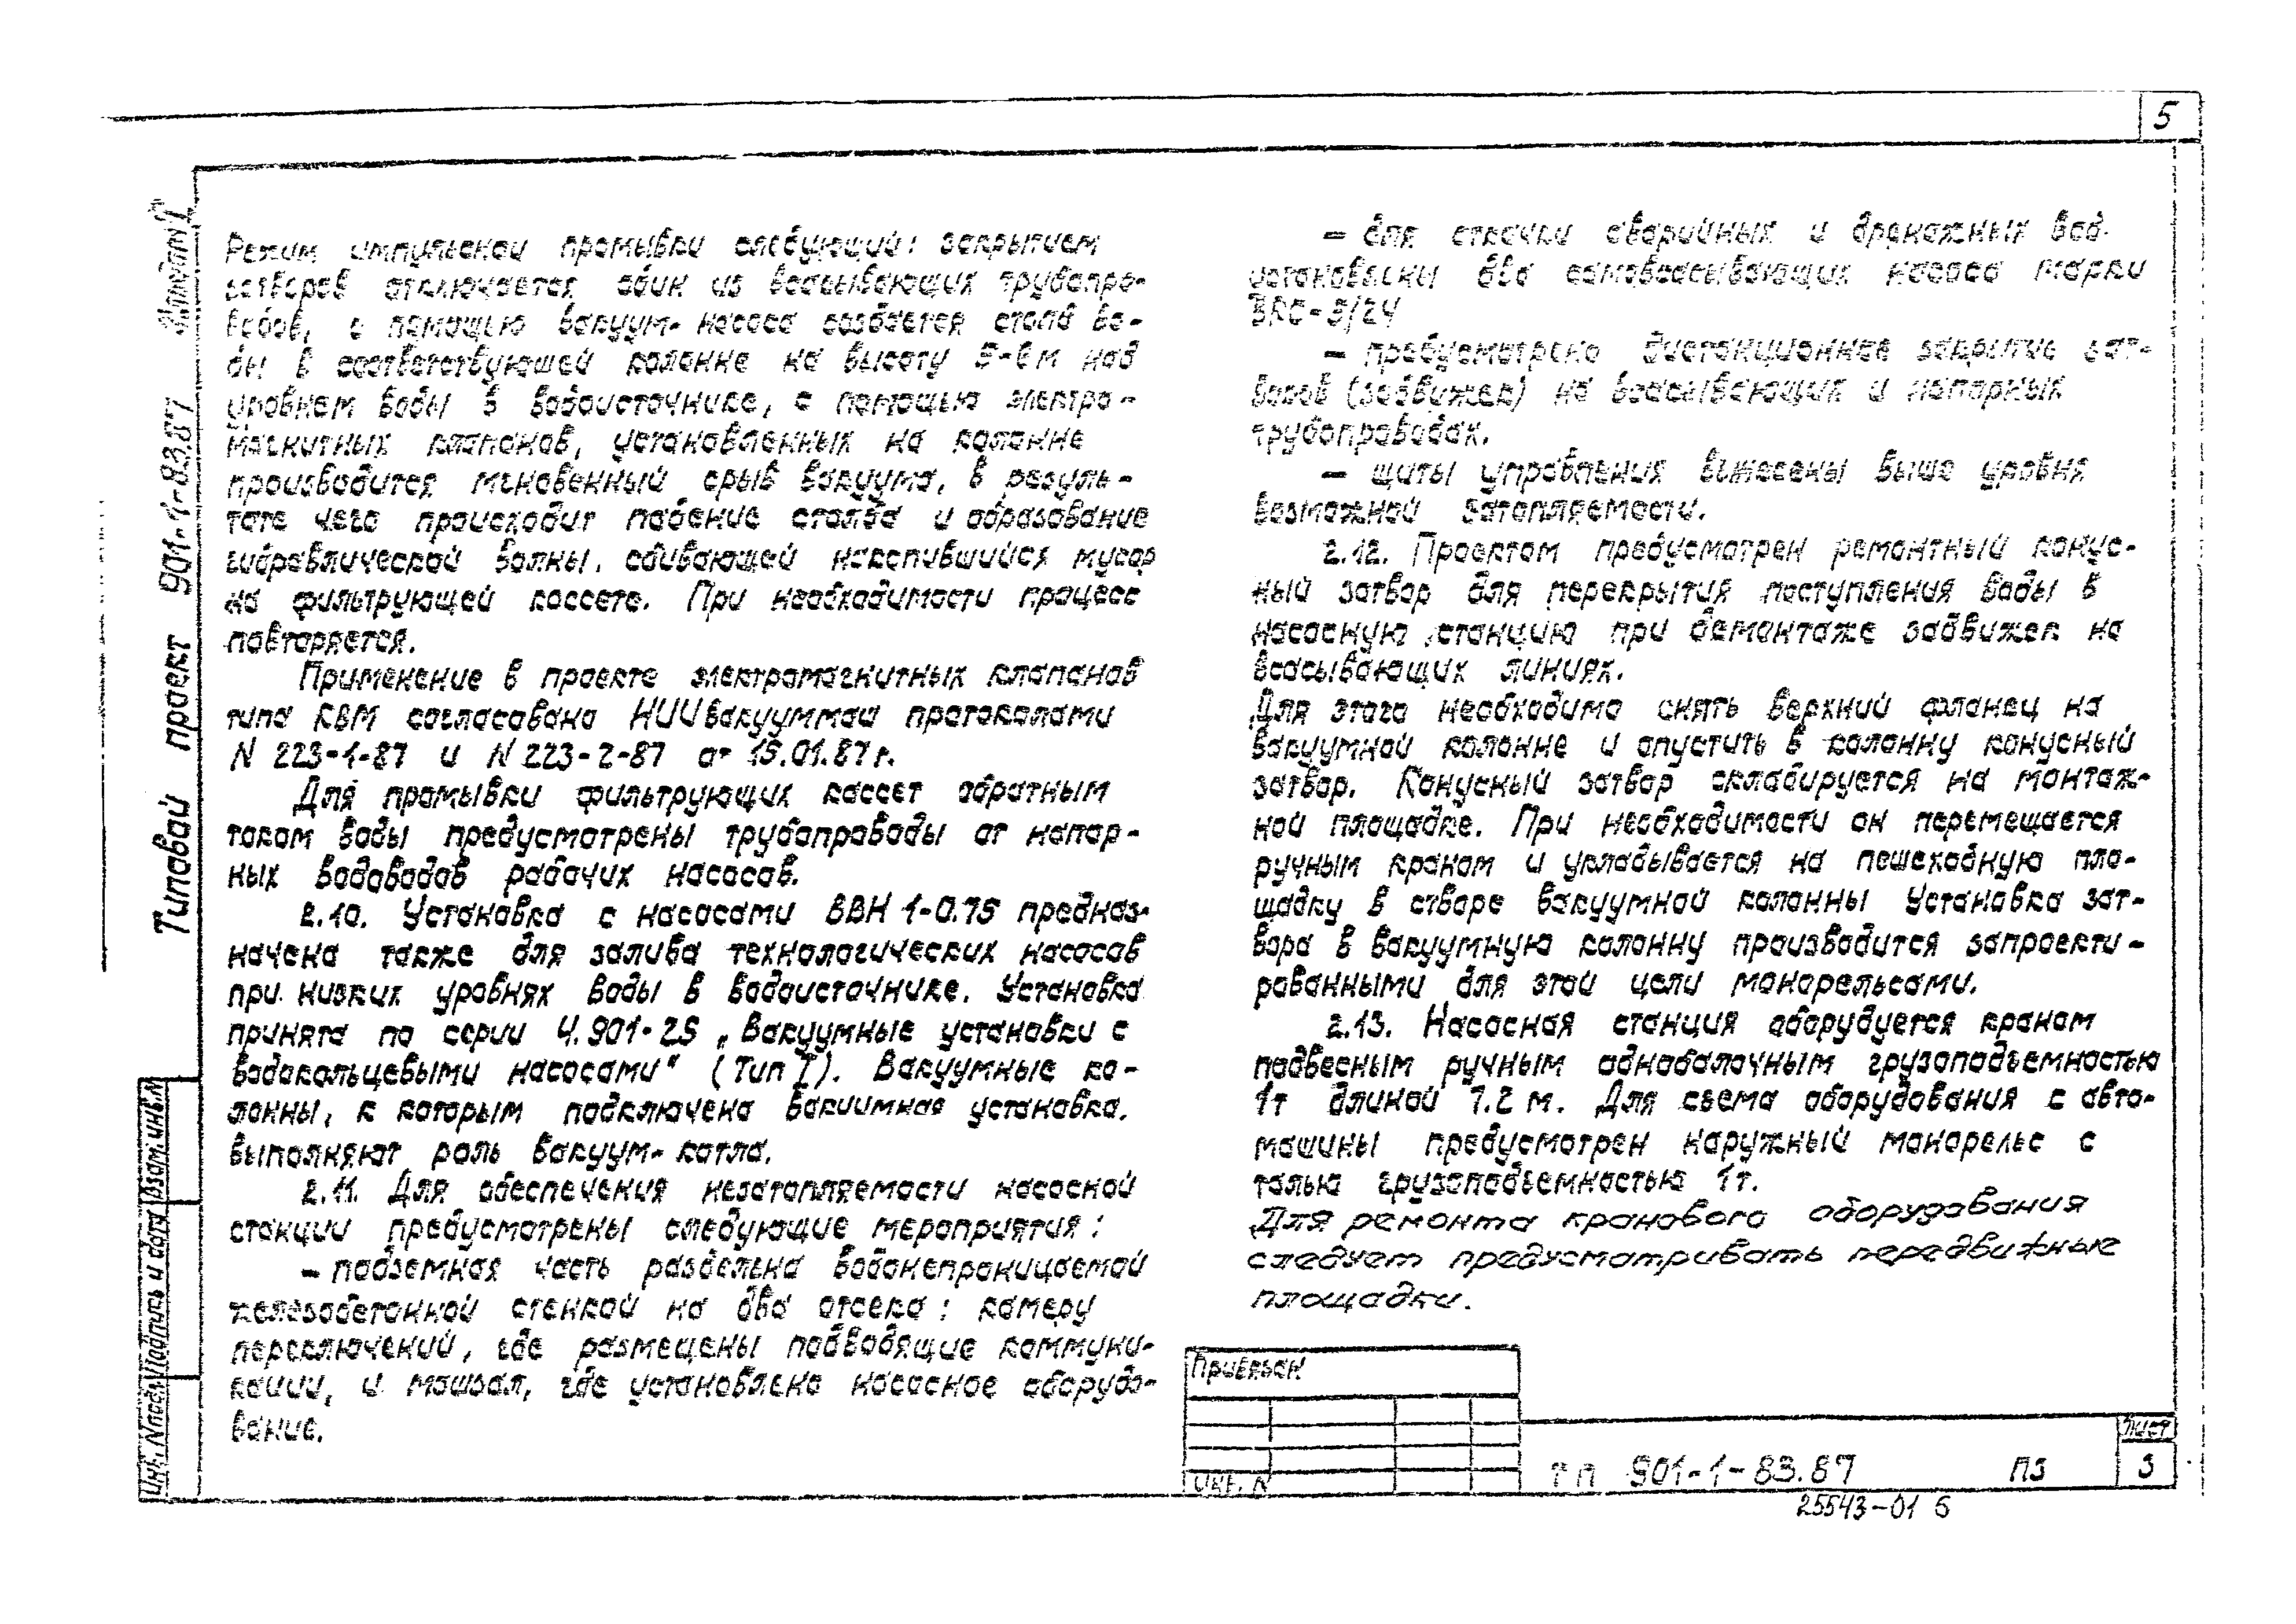 5
Режим импульсной промывки следующий: закрытием
затворов отключается один из всасывающих трубопро-
водов, с помощью вакуум-насоса создается столб во-
ды в соответствующей колонне на высоту 5-6м над
уровнем воды в водоисточнике, с помощью электро-
магнитных клапанов, установленных на колонне
производится мгновенный срыв вакуума, в резуль-
тате чего происходит падение столба и образование
гидравлической волны, сбивающей накопившийся мусор
на фильтрующей кассете. При необходимости процесс
повторяется.
Применение в проекте электромагнитных клапанов
типа КВМ согласовано НИИвакууммаш протоколами
N 223-1-87 и N 223-2-87 от 15.01.87г.
Для промывки фильтрующих кассет обратным
током воды предусмотрены трубопроводы от напор-
ных водоводов рабочих насосов.
2.10. Установка с насосами ВВН 1-0.75 предназ-
начена также для залива технологических насосов
при низких уровнях воды в водоисточнике. Установка
принята по серии 4.901-25 „Вакуумные установки с
водокольцевыми насосами" (Тип I). Вакуумные ко-
лонны, к которым подключена вакуумная установка,
выполняют роль вакуум-котла.
2.11. Для обеспечения незатопляемости насосной
станции предусмотрены следующие мероприятия:
- подземная часть разделена водонепроницаемой
железобетонной стенкой на два отсека: камеру
переключений, где размещены подводящие коммуни-
кации, и машзал, где установлено насосное оборудо-
вание.
- для откачки аварийных и дренажных вод
установлены два самовсасывающих насоса марки
ВКС-5/24
- предусмотрено дистанционное закрытие зат-
воров (задвижек) на всасывающих и напорных
трубопроводах.
- щиты управления вынесены выше уровня
возможной затопляемости.
2.12. Проектом предусмотрен ремонтный конус-
ный затвор для перекрытия поступления воды в
насосную станцию при демонтаже задвижек на
всасывающих линиях.
Для этого необходимо снять верхний фланец на
вакуумной колонне и опустить в колонну конусный
затвор. Конусный затвор складируется на монтаж-
ной площадке. При необходимости он перемещается
ручным краном и укладывается на пешеходную пло-
щадку в створе вакуумной колонны Установка зат-
вора в вакуумную колонну производится запроекти-
рованными для этой цели монорельсами.
2.13. Насосная станция оборудуется краном
подвесным ручным однобалочным грузоподъемностью
1т длиной 7.2 м. Для съема оборудования с авто-
машины предусмотрен наружный монорельс с
талью грузоподъемностью 1т.
Для ремонта кранового оборудования
следует предусматривать передвижные
площадки.
Типовой проект 901-1-83.87 Альбом I
Инв.Nподл Подпись и дата Взам.инв.N
Привязан
Инв. N
ТП 901-1-83.87 ПЗ
Лист
3
25543-01 6